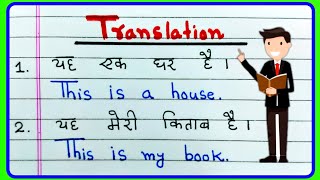 Translation
1. यह एक घर है।
This is a house.
2. यह मेरी किताब है।
This is my book.